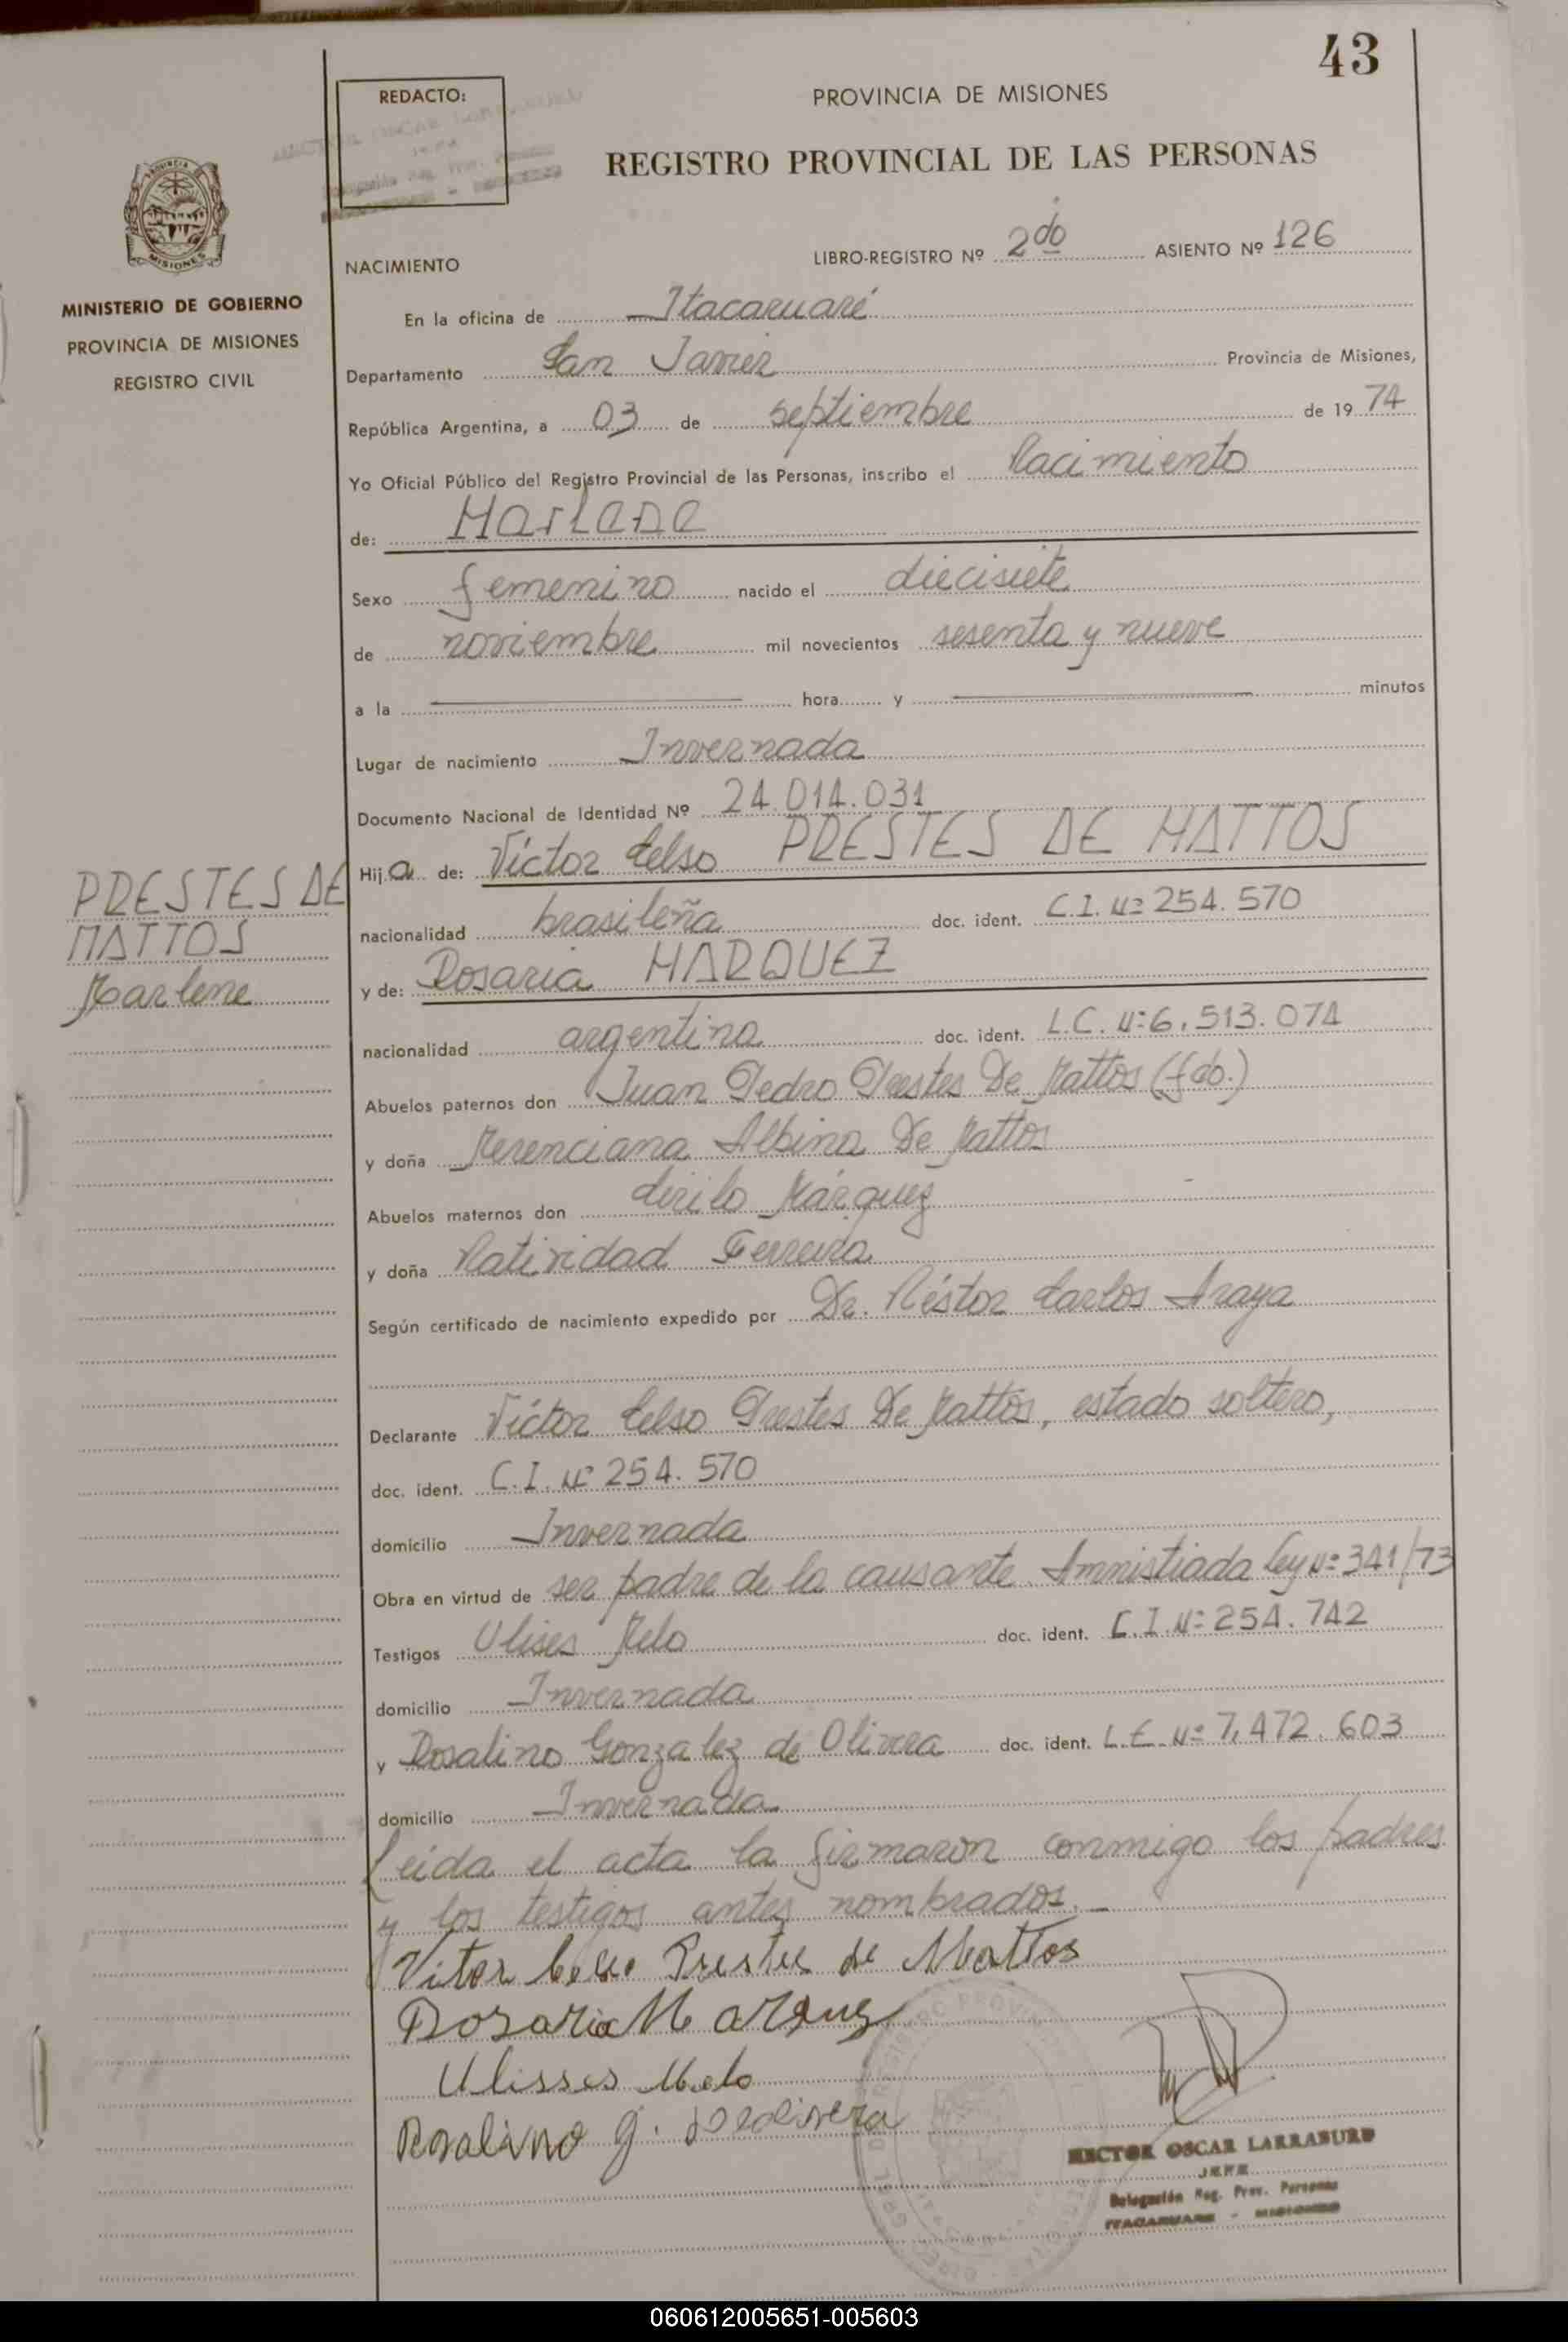 43
REDACTO:
PROVINCIA DE MISIONES
REGISTRO PROVINCIAL DE LAS PERSONAS
PROVINCIA
MISIONES
MINISTERIO DE GOBIERNO
PROVINCIA DE MISIONES
REGISTRO CIVIL
NACIMIENTO LIBRO-REGISTRO Nº 2do ASIENTO Nº 126
En la oficina de Itacaruaré
Departamento San Javier Provincia de Misiones,
República Argentina, a 03 de septiembre de 1974
Yo Oficial Público del Registro Provincial de las Personas, inscribo el Nacimiento
de: Marlene
Sexo femenino nacido el diecisiete
de noviembre mil novecientos sesenta y nueve
a la hora y minutos
Lugar de nacimiento Invernada
Documento Nacional de Identidad Nº 24.014.031
Hija de: Víctor Celso PRESTES DE MATTOS
nacionalidad brasileña doc. ident. C.I. Nº 254.570
y de: Rosaria MARQUEZ
nacionalidad argentina doc. ident. L.C. Nº 6.513.074
PRESTES DE
MATTOS
Marlene
Abuelos paternos don Juan Pedro Prestes De Mattos (fdo.)
y doña Merenciana Albina De Mattos
Abuelos maternos don Cirilo Márquez
y doña Natividad Ferreira
Según certificado de nacimiento expedido por Dr. Néstor Carlos Araya
Declarante Víctor Celso Prestes De Mattos, estado soltero,
doc. ident. C.I. Nº 254.570
domicilio Invernada
Obra en virtud de ser padre de la causante. Amnistiada Ley Nº 341/73
Testigos Ulises Melo doc. ident. C.I. Nº 254.742
domicilio Invernada
y Rosalino Gonzalez de Olivera doc. ident. L.E. Nº 7.472.603
domicilio Invernada
Leída el acta la firmaron conmigo los padres
y los testigos antes nombrados.
Vitor Celso Prestes de Mattos
Rosaria Marquez
Ulisses Melo
Rosalino g. de olivera
HECTOR OSCAR LARRABURU
JEFE
Delegación Reg. Prov. Personas
ITACARUARE - MISIONES
060612005651-005603